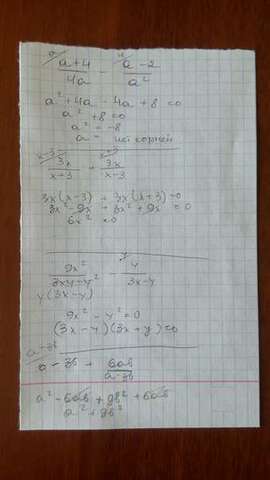 a 4
(a+4)/4a - (a-2)/a²
a² + 4a - 4a + 8 = 0
a² + 8 = 0
a² = -8
a =
x-3 x+3
3x/(x+3) + 3x/(x-3)
3x(x-3) + 3x(x+3) = 0
3x² - 9x + 3x² + 9x = 0
6x² = 0
y
9x²/(3xy-y²) - y/(3x-y)
y(3x-y)
9x² - y² = 0
(3x-y)(3x+y) = 0
a-3b
a - 3b + 6ab/(a-3b)
a² - 6ab + 9b² + 6ab
a² + 9b²